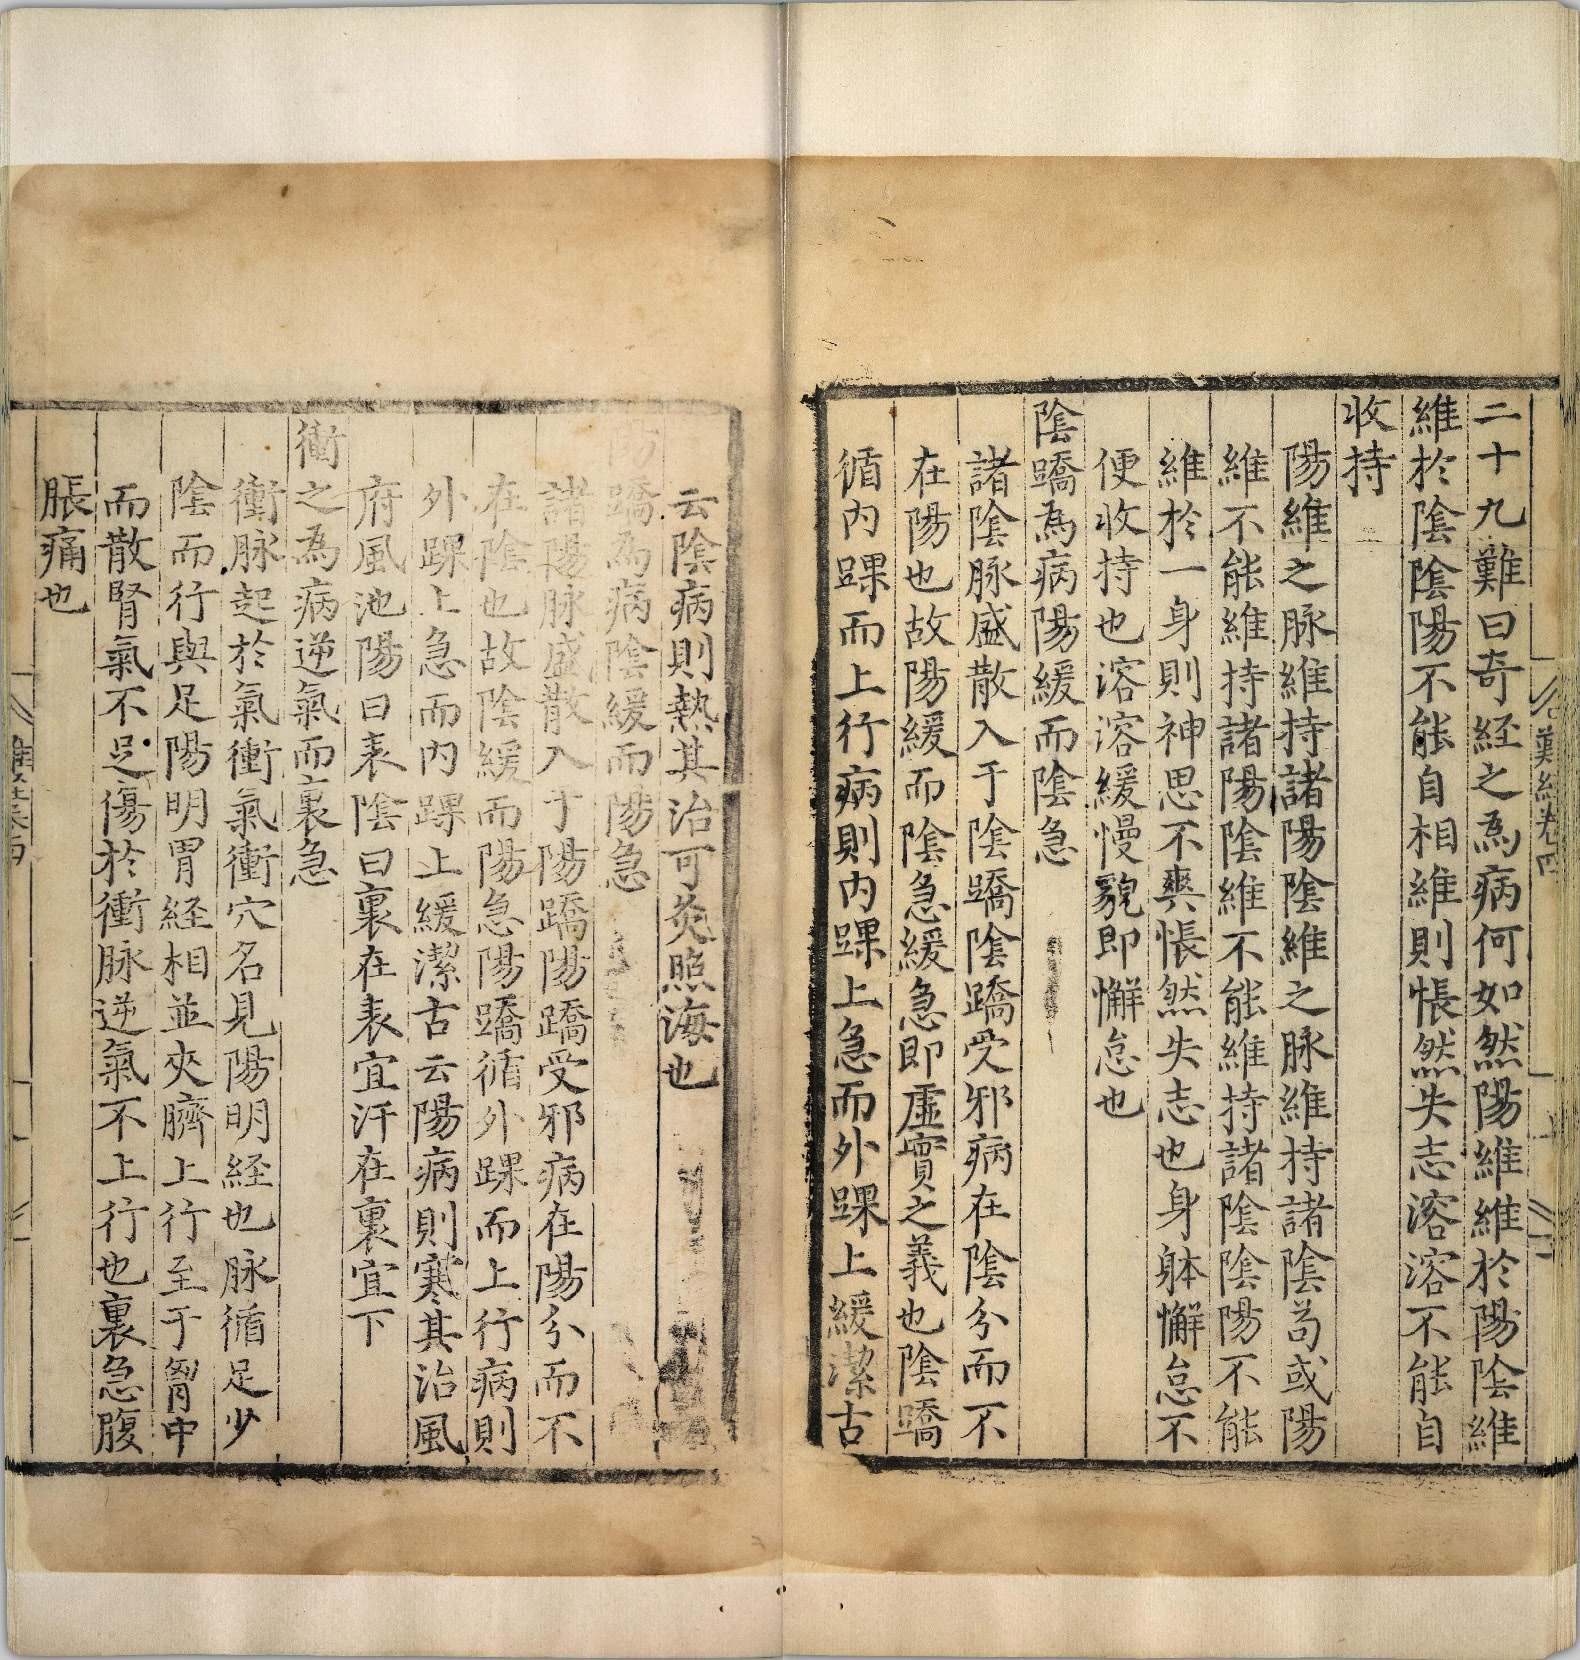 二十九難曰奇経之為病何如然陽維維於陽陰維
維於陰陰陽不能自相維則悵然失志溶溶不能自
收持
陽維之脉維持諸陽陰維之脉維持諸陰苟或陽
維不能維持諸陽陰維不能維持諸陰陰陽不能
維於一身則神思不爽悵然失志也身躰懈怠不
便收持也溶溶緩慢貌即懈怠也
陰蹻為病陽緩而陰急
諸陰脉盛散入于陰蹻陰蹻受邪病在陰分而不
在陽也故陽緩而陰急緩急即虛實之義也陰蹻
循內踝而上行病則內踝上急而外踝上緩潔古
云陰病則熱其治可灸照海也
陽蹻為病陰緩而陽急
諸陽脉盛散入于陽蹻陽蹻受邪病在陽分而不
在陰也故陰緩而陽急陽蹻循外踝而上行病則
外踝上急而內踝上緩潔古云陽病則寒其治風
府風池陽曰表陰曰裏在表宜汗在裏宜下
衝之為病逆氣而裏急
衝脉起於氣衝氣衝穴名見陽明経也脉循足少
陰而行與足陽明胃経相並夾臍上行至于胷中
而散腎氣不足傷於衝脉逆氣不上行也裏急腹
脹痛也
難經卷四